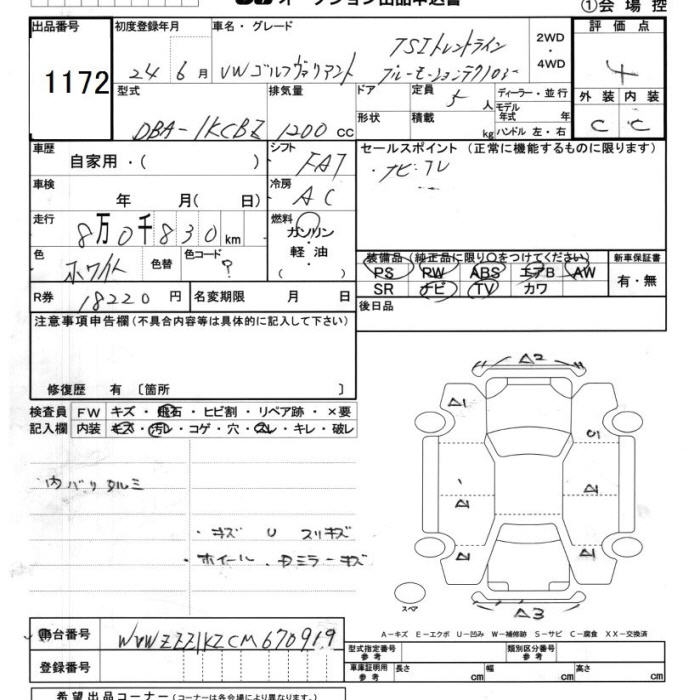 オークション出品申込書
①会場控
出品番号 1172
初度登録年月 24 6月
車名・グレード
VWゴルフヴァリアント
TSIトレンドライン
ブルーモーションテクノロジー
2WD
・
4WD
評価点
4
外装 内装
C C
型式 DBA-1KCBZ
排気量 1200cc
ドア
形状
定員 5人
積載 kg
ディーラー・並行
モデル年式 年
ハンドル 左・右
車歴 自家用・( )
シフト FA7
セールスポイント (正常に機能するものに限ります)
・ナビ・TV
車検 年 月( 日)
冷房 AC
走行 8万0千830km
燃料
ガソリン
・
軽油
( ・ )
色 ホワイト
色替
色コード ?
装備品 (純正品に限り〇をつけてください)
PS PW ABS エアB AW
SR ナビ TV カワ
新車保証書
有・無
R券 18220円
名変期限 月 日
後日品
注意事項申告欄(不具合内容等は具体的に記入して下さい)
修復歴 有 〔箇所 〕
検査員 FW キズ・飛石・ヒビ割・リペア跡・×要
記入欄 内装 キズ・汚レ・コゲ・穴・スレ・キレ・破レ
内バリタルミ
・キズ U スリキズ
・ホイール、Dミラーキズ
A2
A1
U1
A1
A1
A1
A1
A3
スペア
A-キズ E-エクボ U-凹み W-補修跡 S-サビ C-腐食 XX-交換済
車台番号 WVWZZZ1KZCM670919
登録番号
型式指定番号 参考
類別区分番号 参考
車庫証明用 参考 長さ cm 幅 cm 高さ cm
希望出品コーナー(コーナー名は各会場により異なります。)